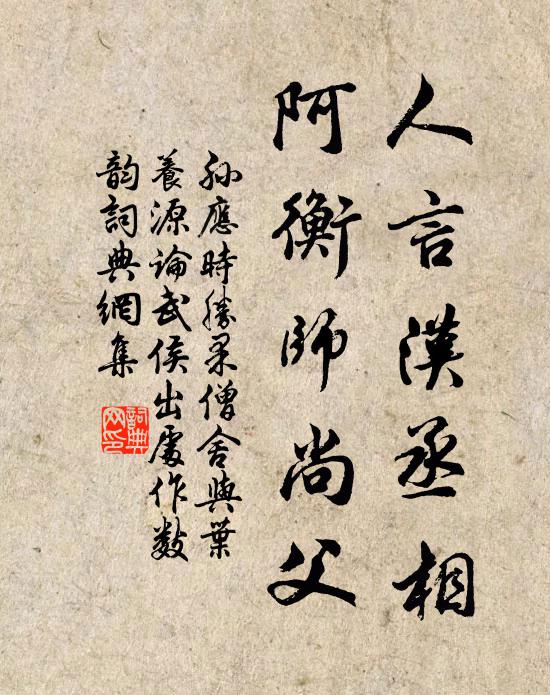 人言漢丞相
阿衡師尚父
孙應時勝果僧舍與葉
養源论武侯出處作數
韵詞典網集
詞典
网印